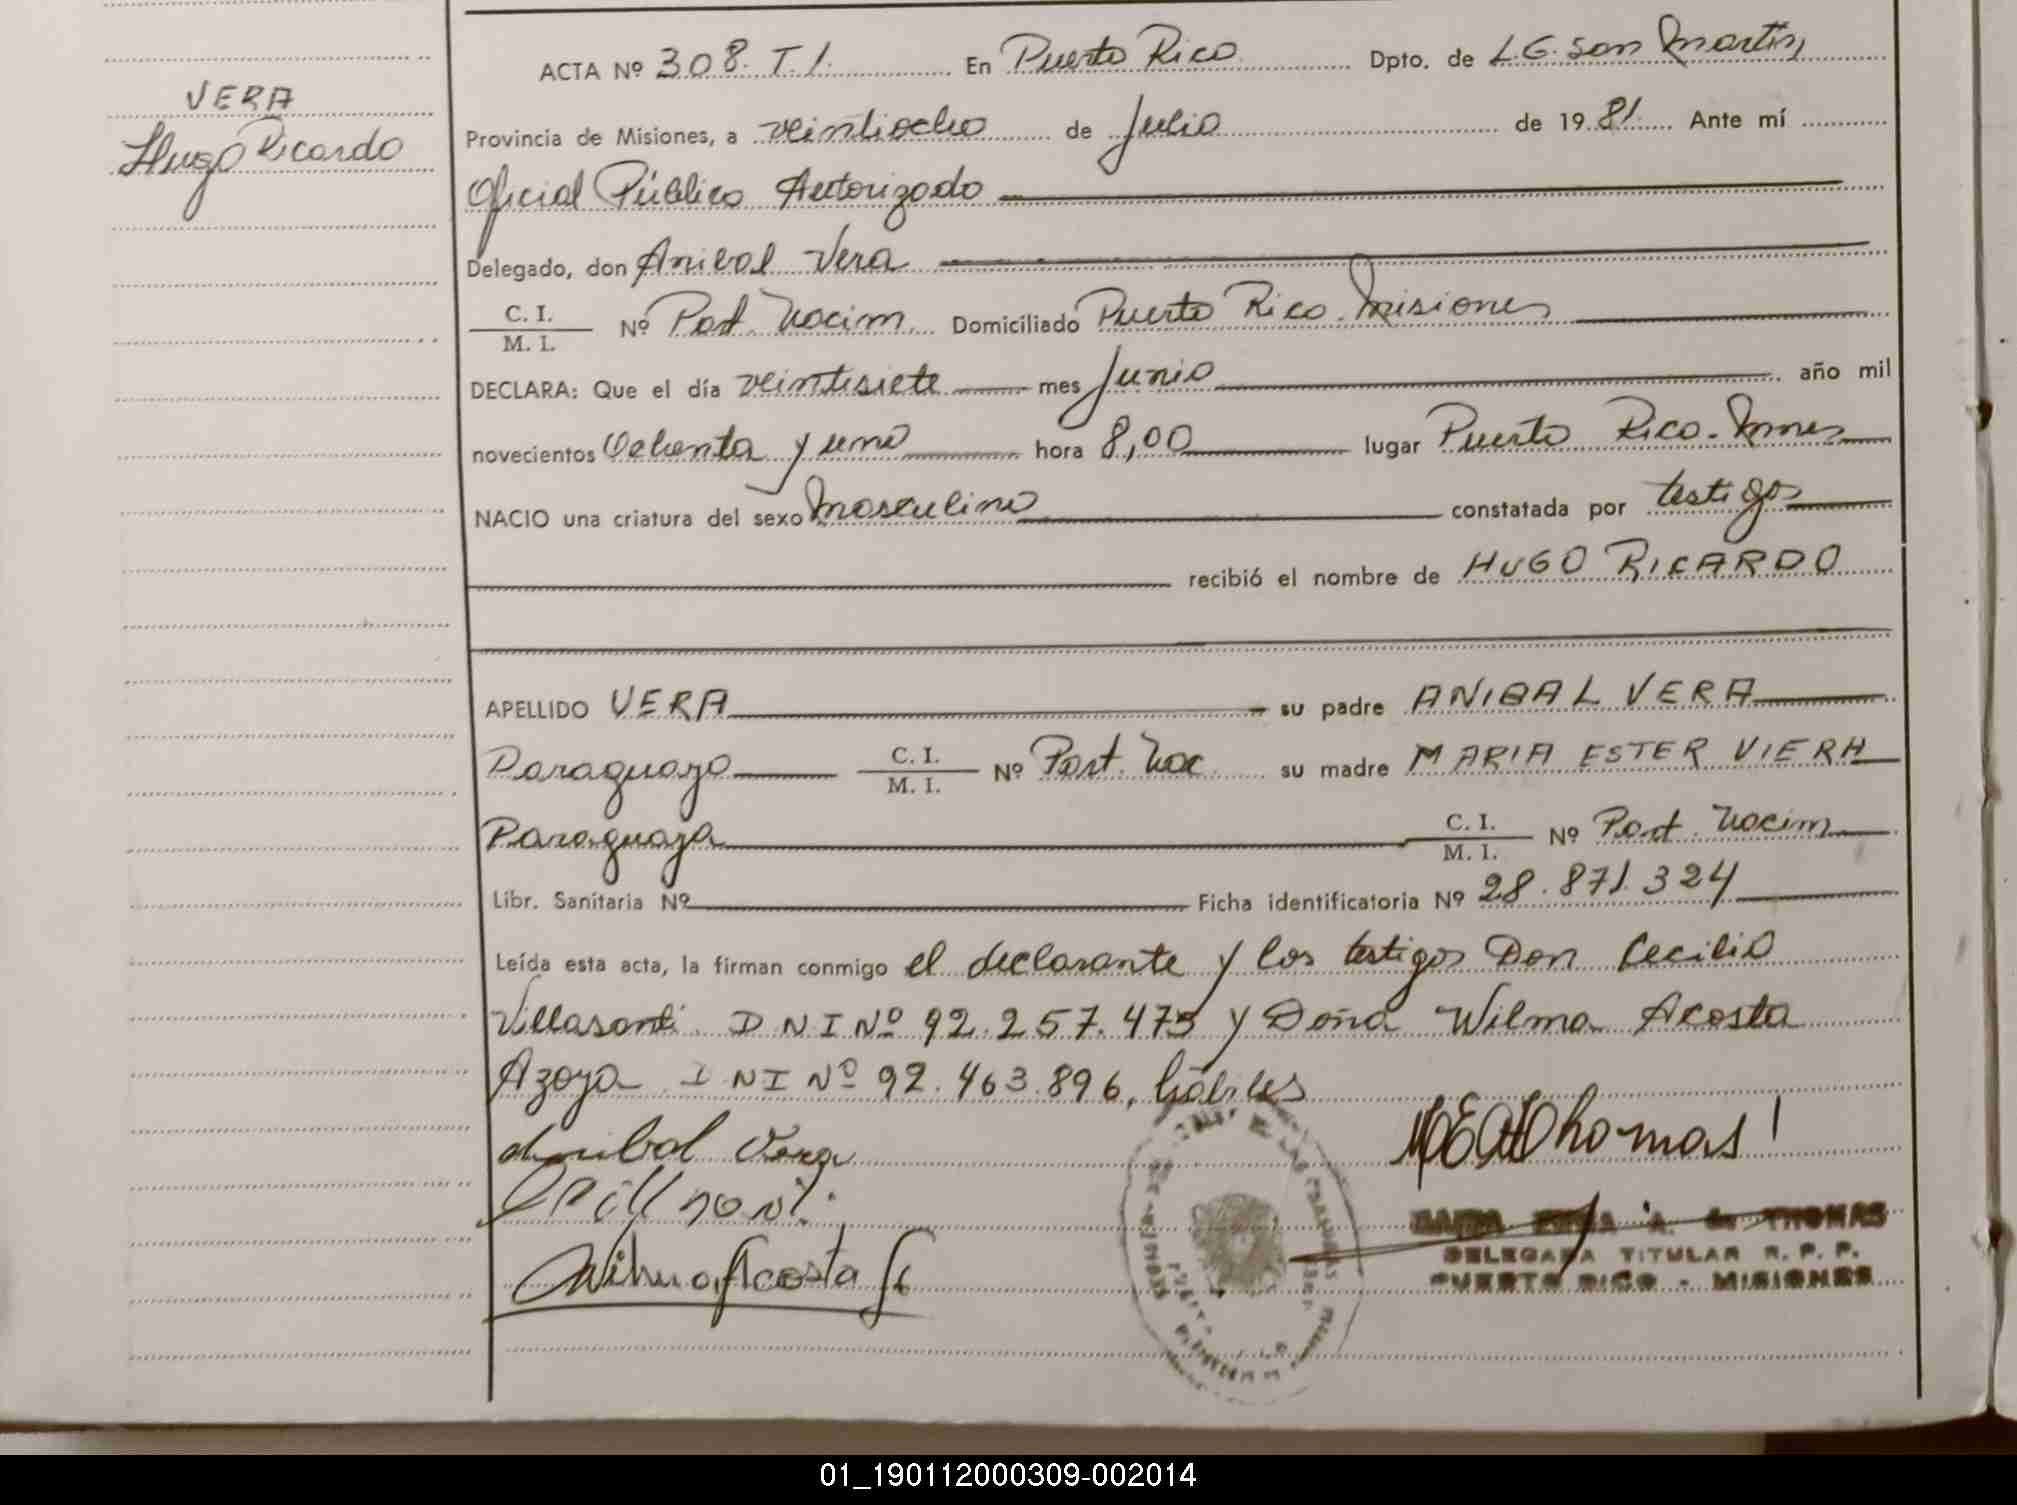 VERA
Hugo Ricardo
ACTA Nº 308. T. I. En Puerto Rico Dpto. de L.G. San Martín
Provincia de Misiones, a veintiocho de Julio de 1981. Ante mí
Oficial Público Autorizado
Delegado, don Anibal Vera
C. I. / M. I. Nº Part. Nacim. Domiciliado Puerto Rico. Misiones
DECLARA: Que el día veintisiete mes Junio año mil
novecientos Ochenta y uno hora 8,00 lugar Puerto Rico. Mnes
NACIO una criatura del sexo Masculino constatada por testigos
recibió el nombre de HUGO RICARDO
APELLIDO VERA su padre ANIBAL VERA
Paraguayo C. I. / M. I. Nº Part. Nac. su madre MARIA ESTER VIERA
Paraguaya C. I. / M. I. Nº Part. Nacim
Libr. Sanitaria Nº Ficha identificatoria Nº 28.871.324
Leída esta acta, la firman conmigo el declarante y los testigos Don Cecilio
Villasanti. DNI Nº 92.257.475 y Doña Wilma Acosta
Azoya DNI Nº 92.463.896, hábiles
Anibal Vera
Wilma Acosta
A. de THOMAS
DELEGADA TITULAR R. P. P.
PUERTO RICO - MISIONES
01_190112000309-002014